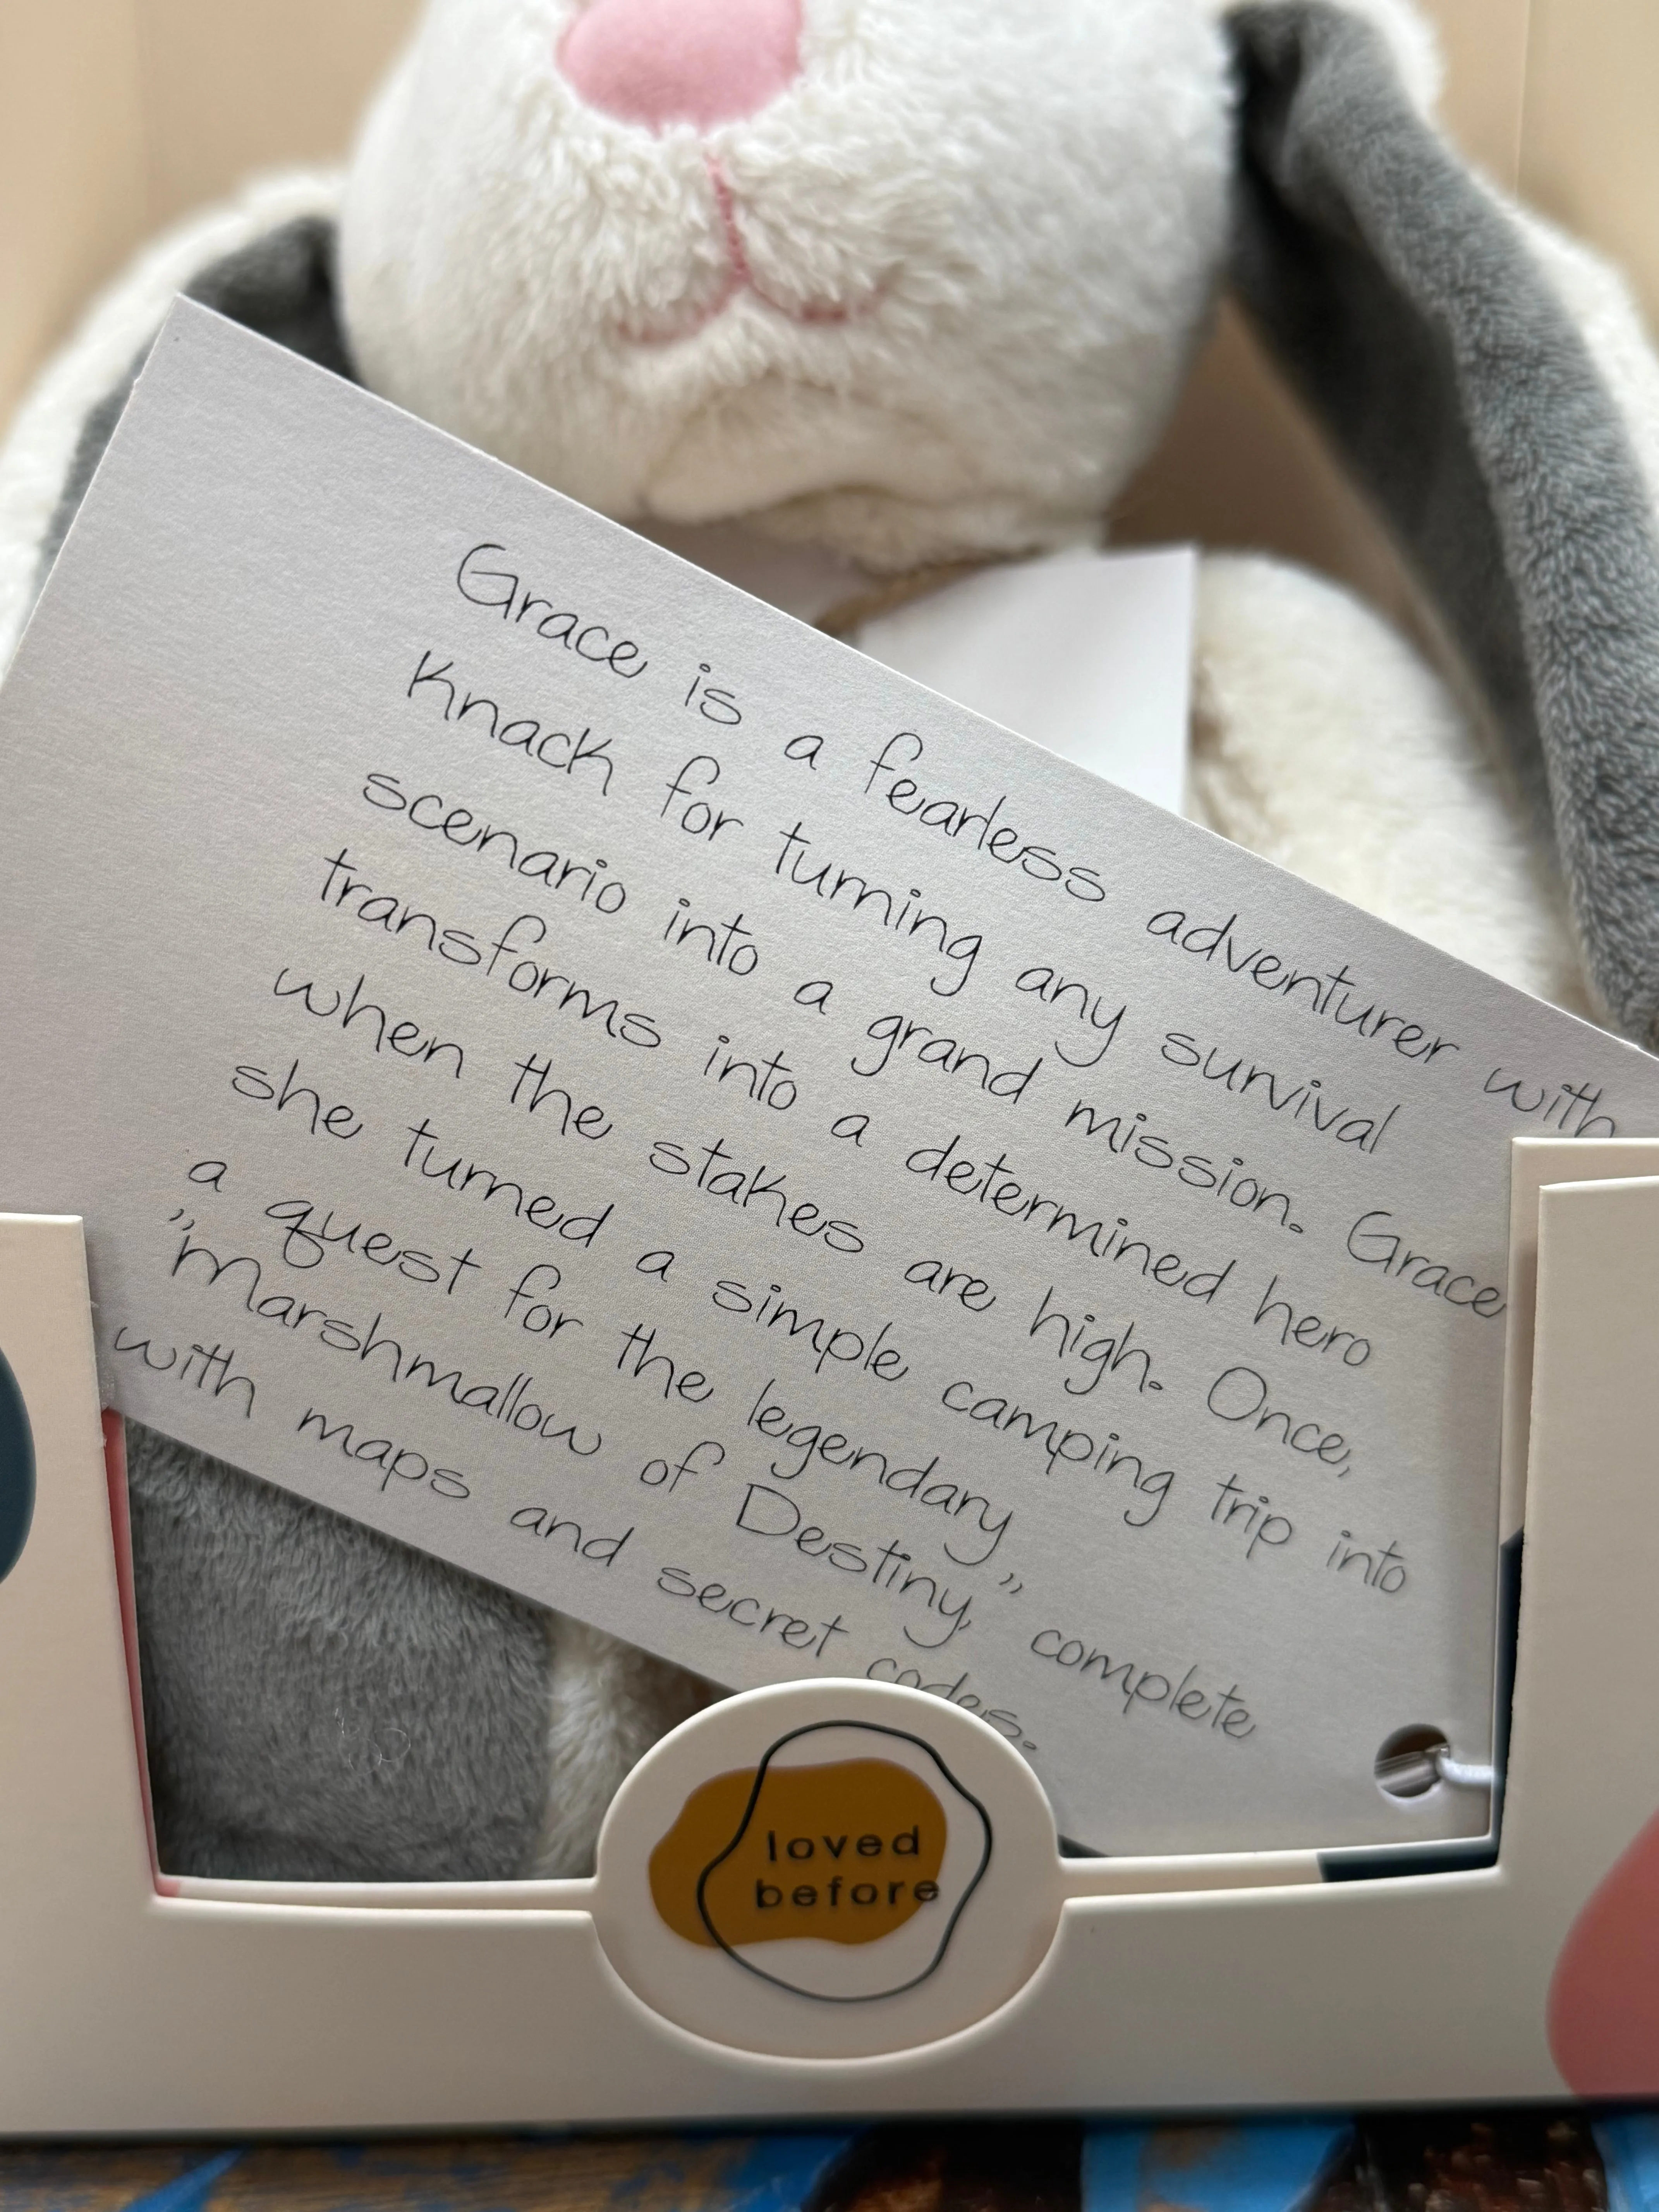 Grace is a fearless adventurer with
knack for turning any survival
scenario into a grand mission. Grace
transforms into a determined hero
when the stakes are high. Once,
she turned a simple camping trip into
a quest for the legendary
"Marshmallow of Destiny," complete
with maps and secret codes.
loved
before